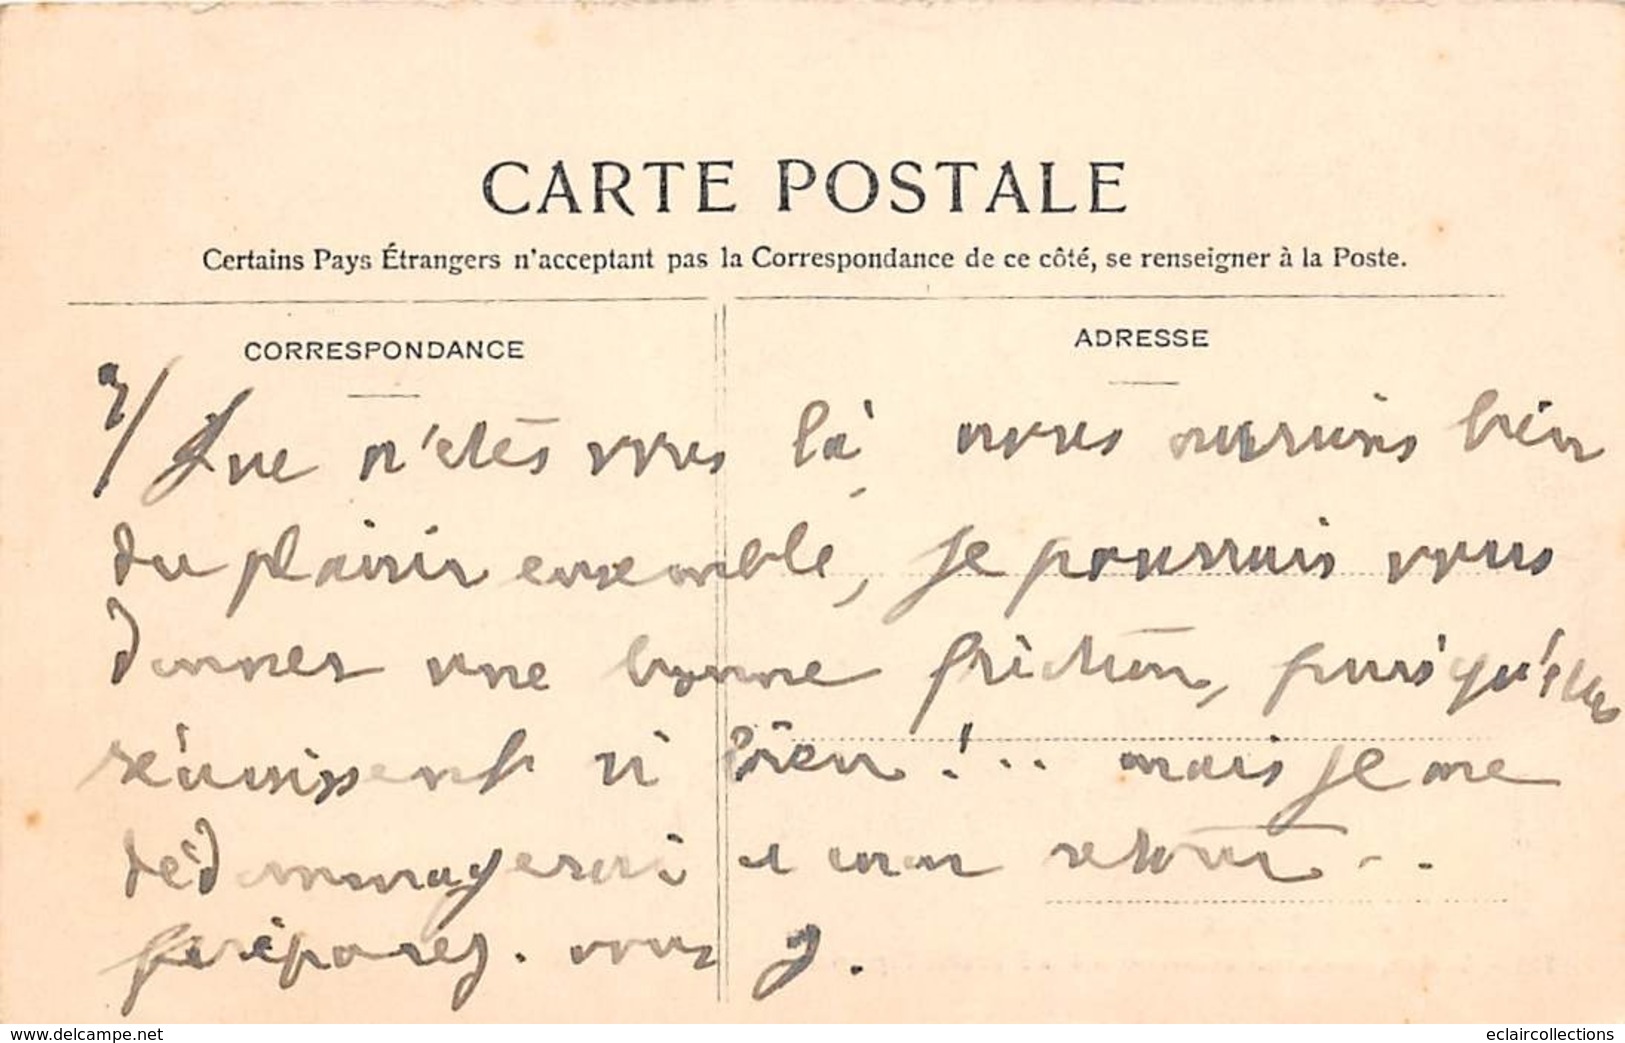 CARTE POSTALE
Certains Pays Étrangers n'acceptant pas la Correspondance de ce côté, se renseigner à la Poste.
CORRESPONDANCE
ADRESSE
Que n'etes vous là nous aurions bien
du plaisir ensemble, je pourrais vous
donner une bonne friction, puisqu'elles
réussissent si bien !.. mais je me
dédommagerai a mon retour - .
préparez. vous y.
www.delcampe.net
eclaircollections